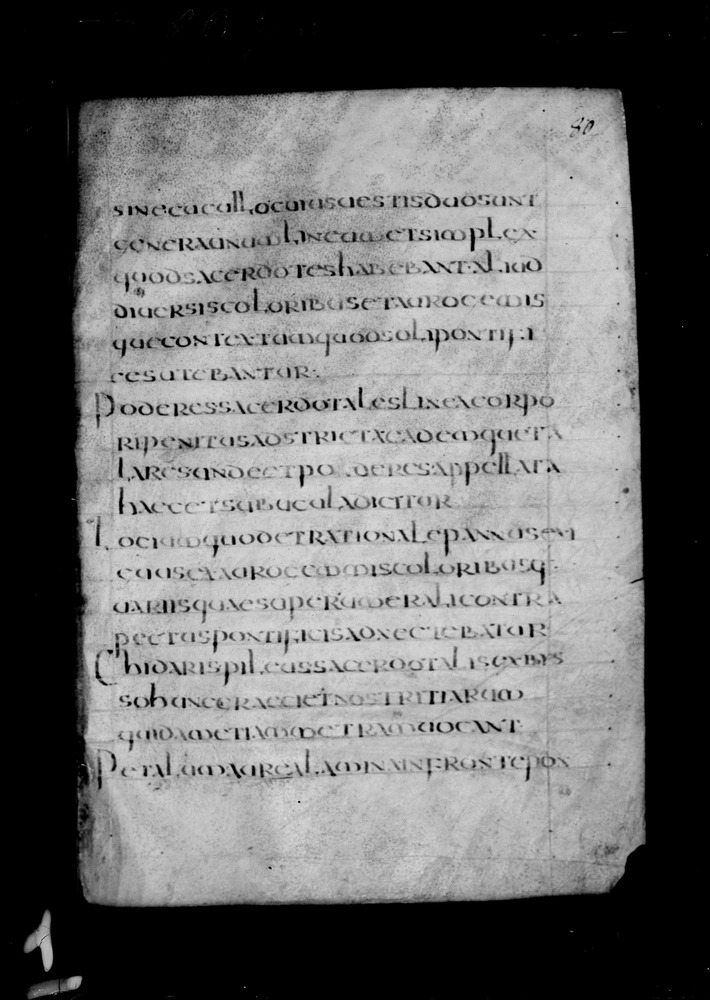 80
sineaculIocuiusuestisduosunt
generaunumlineumetsimplex
quodsacerdoteshabebantaliud
diuersiscoloribusetaurocemis
quecontextumquodsolipontifi
cesutebantur.
Poderessacerdotaleslineacorpo
ripenitusadstrictaeademqueta
larisundeetpoderesappellata
haecetsubuculadicitur
Lociumquodetrationalepannusexi
euusexaurocemmiscoloribusq·
uariisquaesuperumeralicontra
pectuspontificisadnectebatur
Chidarispilleussacerdotalisexbys
sohuncgraecietnostritiaram
quidametiammetramuocant
Petalumaurealaminainfrontepon